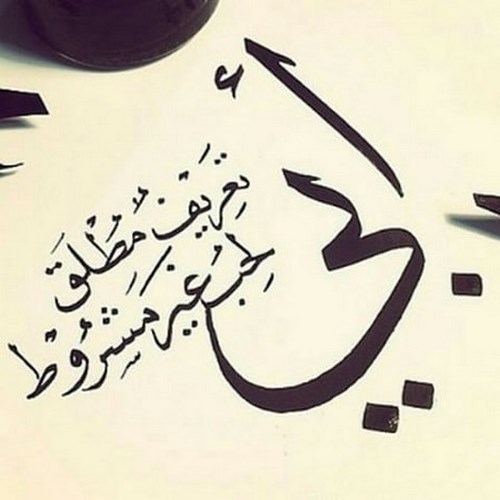 أبي
تَعريف مُطلَق
لِحُب غير مَشروُط